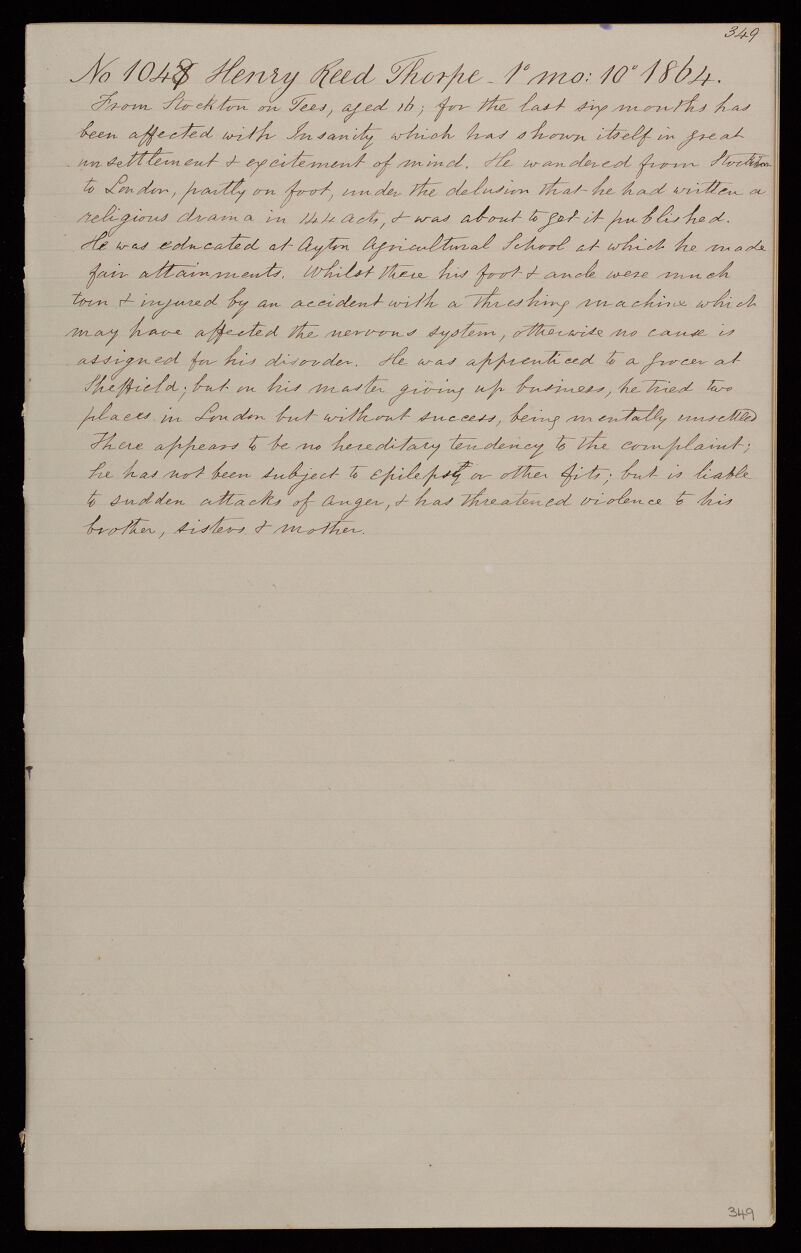 349
No 1048 Henry Reed Thorpe - 1° mo: 10° 1864.
From Stockton on Tees, aged 16; for the last six months has
been affected with Insanity which has shown itself in great
unsettlement & excitement of mind. He wandered from Stockton
to London, partly on foot, under the delusion that he had written a
religious drama in 144 acts, & was about to get it published.
He was educated at Ayton Agricultural School at which he made
fair attainments. Whilst there his foot & ancle were much
torn & injured by an accident with a threshing machine which
may have affected the nervous system, otherwise no cause is
assigned for his disorder. He was apprenticed to a grocer at
Sheffield; but on his master giving up business, he tried two
places in London but without success, being mentally unsettled
There appears to be no hereditary tendency to the complaint;
he has not been subject to epilepsy or other fits; but is liable
to sudden attacks of anger, & has threatened violence to his
brother, sisters & mother.
349